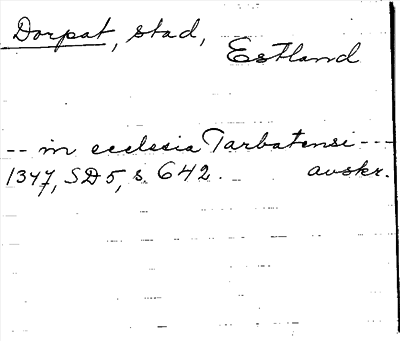 Dorpat, stad,
Estland
-- in ecclesia Tarbatensi ---
1347, SD5, s. 642. avskr.